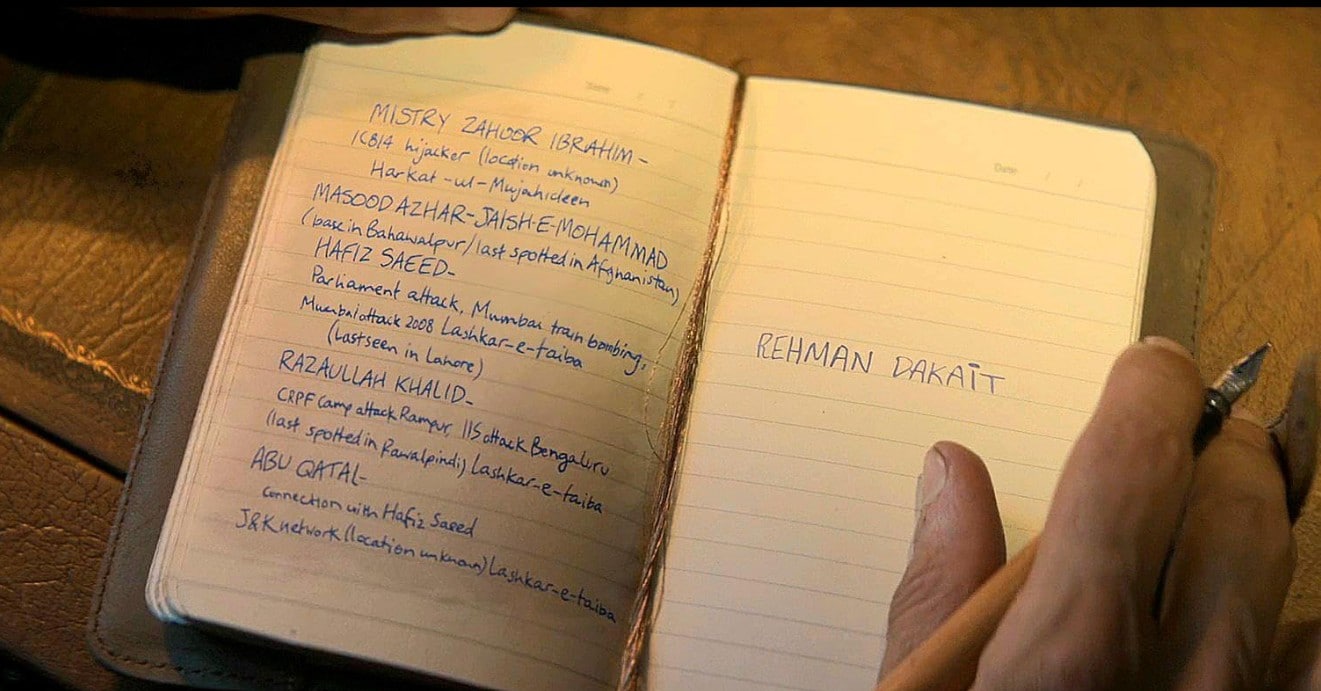 Date / /
MISTRY ZAHOOR IBRAHIM -
IC814 hijacker (location unknown)
Harkat-ul-Mujahideen
MASOOD AZHAR-JAISH-E-MOHAMMAD
(base in Bahawalpur/last spotted in Afghanistan)
HAFIZ SAEED-
Parliament attack, Mumbai train bombing,
Mumbai attack 2008 Lashkar-e-taiba
(last seen in Lahore)
RAZAULLAH KHALID-
CRPF Camp attack Rampur, IIS attack Bengaluru
(last spotted in Rawalpindi) Lashkar-e-taiba
ABU QATAL-
connection with Hafiz Saeed
J&K network (location unknown) Lashkar-e-taiba
Date / /
REHMAN DAKAIT